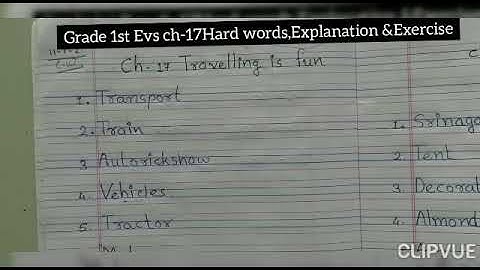 Grade 1st Evs ch-17Hard words,Explanation &Exercise
Ch- 17 Travelling is fun
1. Transport
2. Train
3 Autorickshow
4. Vehicles
5. Tractor
1. Srinaga
2. Tent
3. Decorat
4. Almond
CLIPVUE